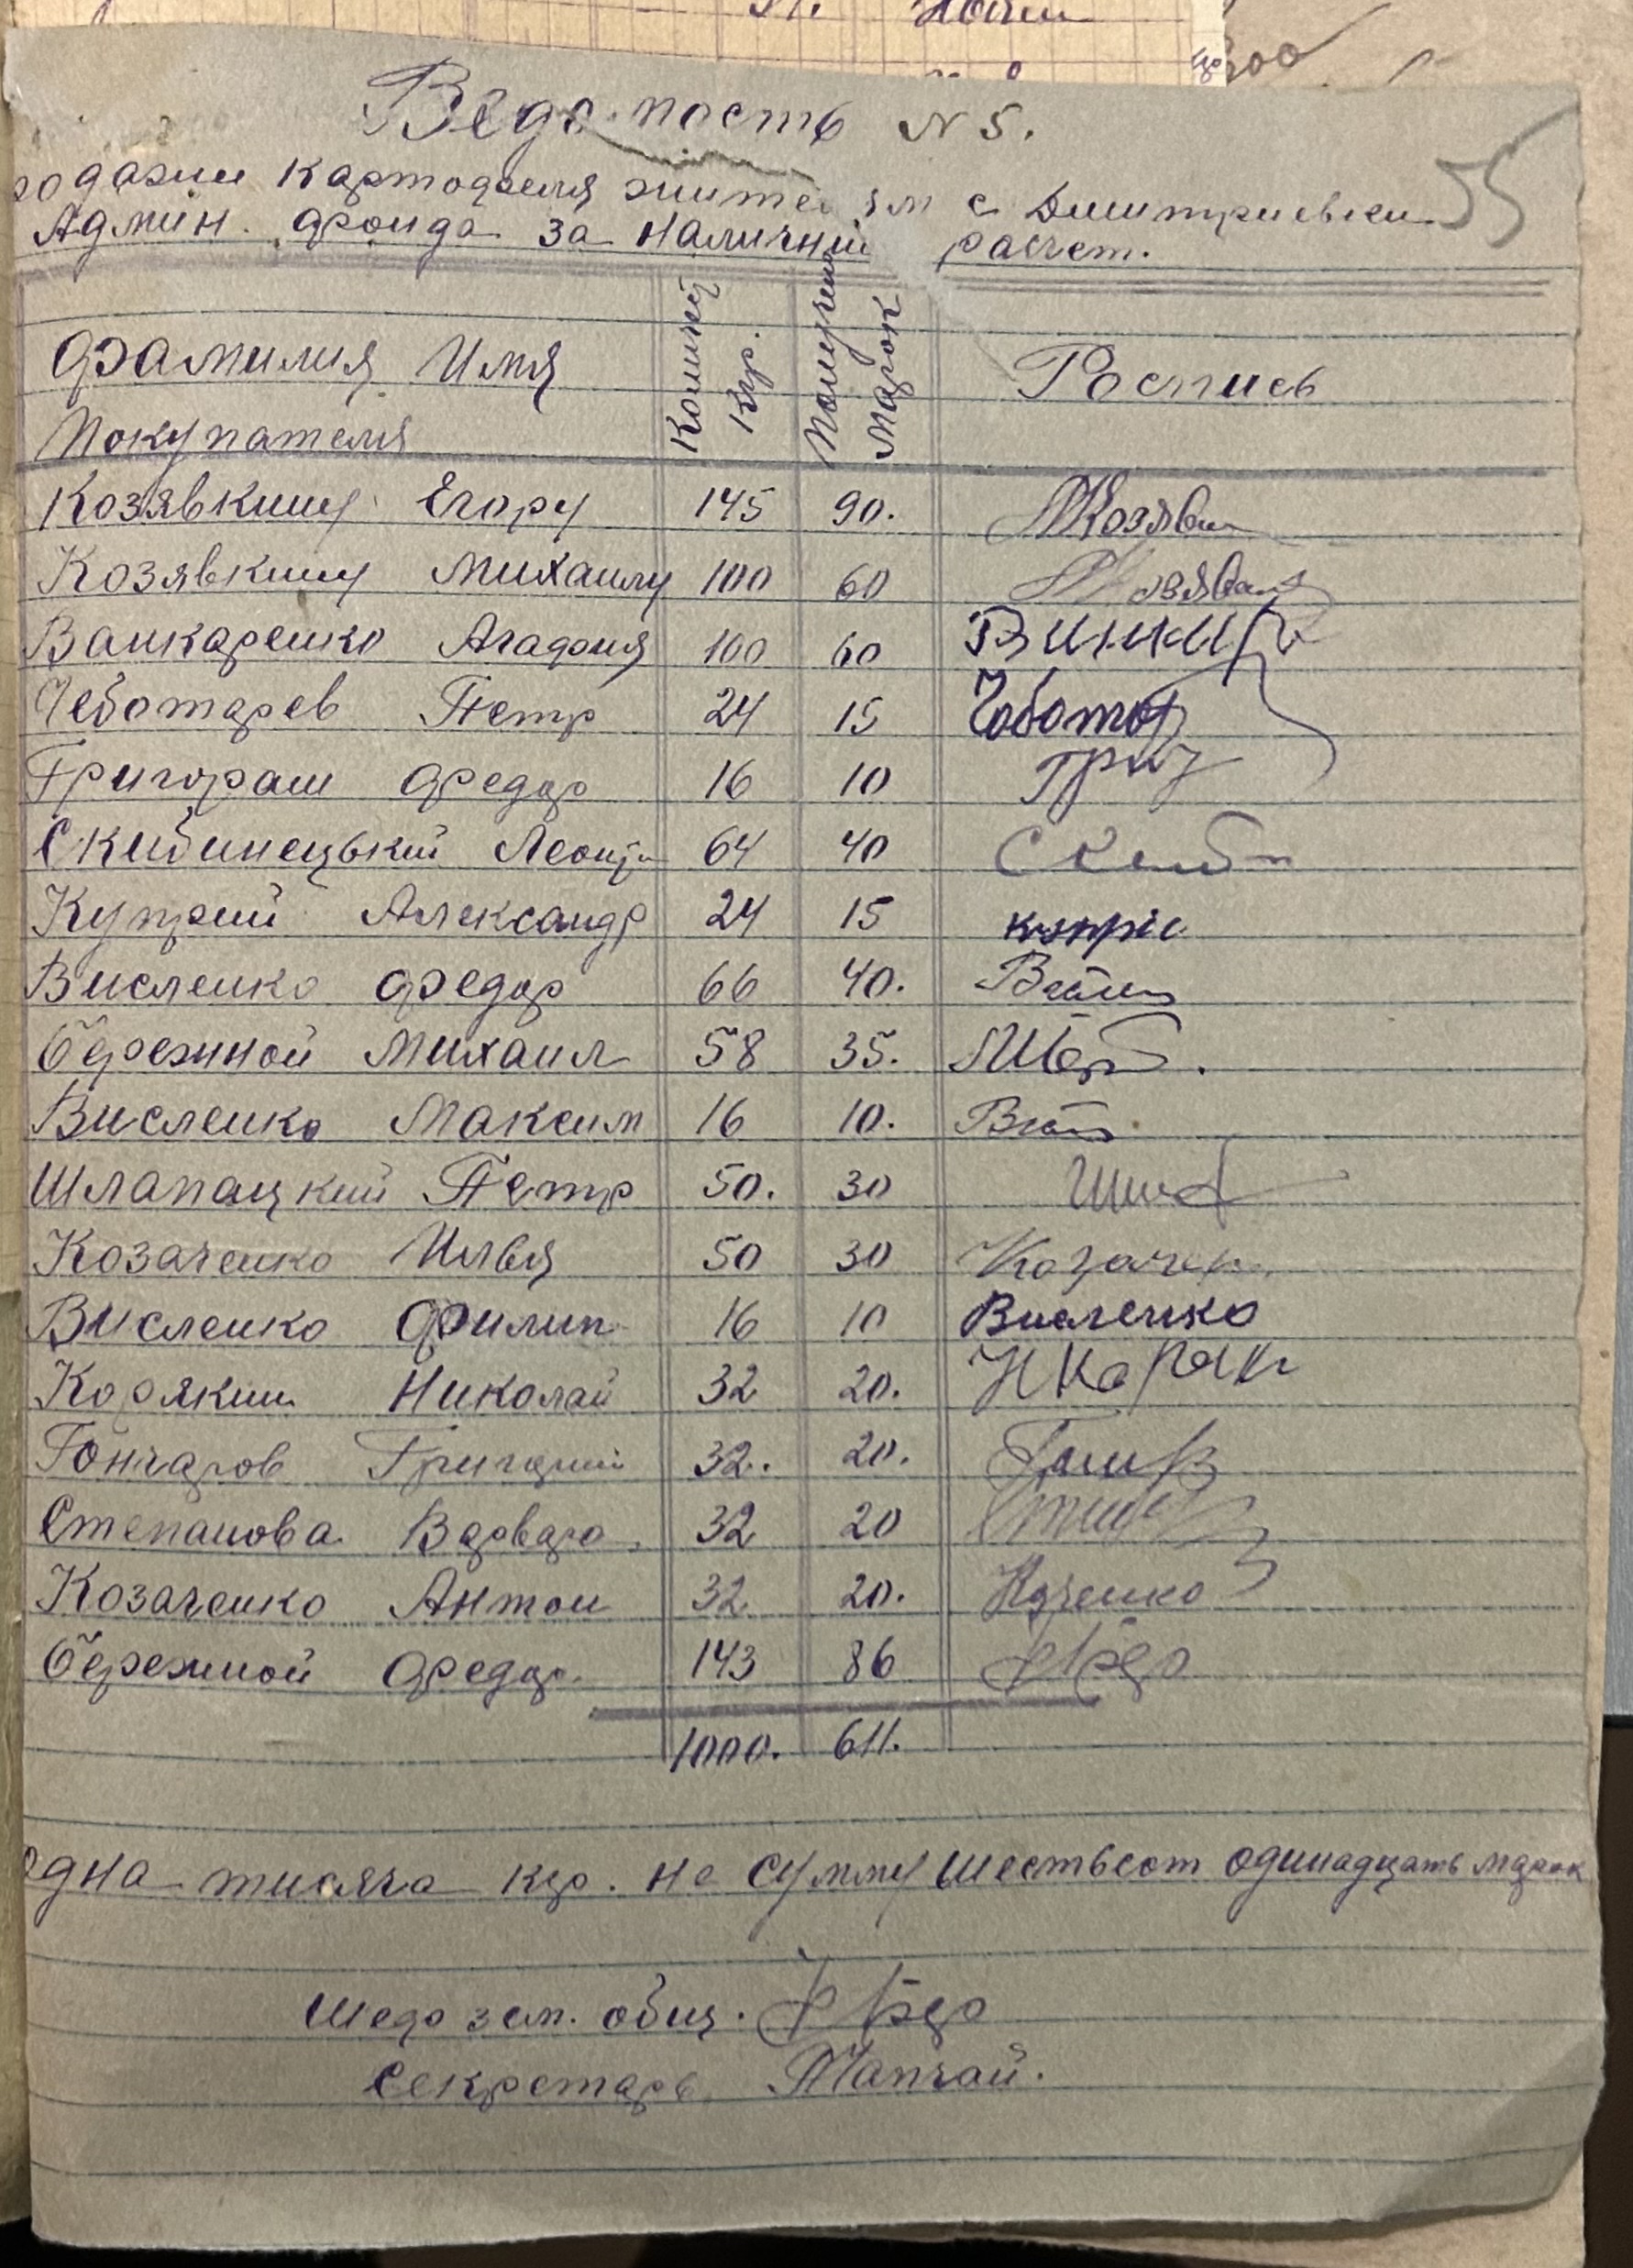 Ведомость N 5.
родажи картофеля жителям с Дмитриевки
Админ. фонда за наличний расчет.
Фамилия Имя Покупателя Количес Кгр. Получено Марок Роспись
Козявкину Егору 145 90. Козявки
Козявкину Михаилу 100 60
Ванкаренко Агафия 100 60
Чеботарев Петр 24 15 Чоботар
Григораш Федор 16 10 Григ
Скибинецький Леонти 64 40 Скиб
Куприй Александр 24 15 купріе
Висленко Федор 66 40.
Бережной Михаил 58 35. МБер.
Висленко Максим 16 10.
Шлапацкий Петр 50. 30
Козаченко Илья 50 30 Козачен
Висленко Филип 16 10 Висленко
Корякин Николай 32 20. НКоряк
Гончаров Григорий 32. 20.
Степанова Варвара. 32 20
Козаченко Антон 32 20.
Бережной Федор. 143 86 ФБер
1000. 611.
одна тисяча кгр. на сумму шестьсот одинадцать марок
Шеф зем. общ. ФБер
Секретарь
55